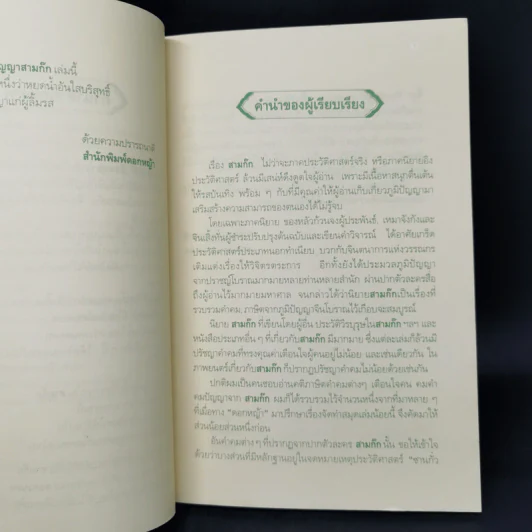 ญญาสามก๊ก เล่มนี้
หนึ่งว่าหยดน้ำอันใสบริสุทธิ์
ญาแก่ผู้ลิ้มรส
ด้วยความปรารถนาดี
สำนักพิมพ์ดอกหญ้า
คำนำของผู้เรียบเรียง
เรื่อง สามก๊ก ไม่ว่าจะภาคประวัติศาสตร์จริง หรือภาคนิยายอิง
ประวัติศาสตร์ ล้วนมีเสน่ห์ดึงดูดใจผู้อ่าน เพราะมีเนื้อหาสนุกตื่นเต้น
ให้รสบันเทิง พร้อม ๆ กับที่มีคุณค่าให้ผู้อ่านเก็บเกี่ยวภูมิปัญญามา
เสริมสร้างความสามารถของตนเองได้ไม่รู้จบ
โดยเฉพาะภาคนิยาย ของหลัวก้วนจงผู้ประพันธ์, เหมาจ้งกังและ
จินเสิ้งทันผู้ชำระปรับปรุงต้นฉบับและเขียนคำวิจารณ์ ได้อาศัยเกร็ด
ประวัติศาสตร์ประเภทนอกทำเนียบ บวกกับจินตนาการแห่งวรรณกร
เติมแต่งเรื่องให้วิจิตรตระการ อีกทั้งยังได้ประมวลภูมิปัญญา
จากปราชญ์โบราณมากมายหลายท่านหลายสำนัก ผ่านปากตัวละครสื่อ
ถึงผู้อ่านไว้มากมายมหาศาล จนกล่าวได้ว่านิยายสามก๊กเป็นเรื่องที่
รวบรวมคำคม, ภาษิตจากภูมิปัญญาจีนโบราณไว้เกือบจะสมบูรณ์
นิยาย สามก๊ก ที่เขียนโดยผู้อื่น ประวัติวีรบุรุษในสามก๊ก ฯลฯ และ
หนังสือประเภทอื่น ๆ ที่เกี่ยวกับสามก๊ก มีมากมาย ซึ่งแต่ละเล่มก็ล้วนมี
ปรัชญาคำคมที่ทรงคุณค่าเตือนใจผู้คนอยู่ไม่น้อย และเช่นเดียวกัน ใน
ภาพยนตร์เกี่ยวกับสามก๊ก ก็ปรากฏปรัชญาคำคมไม่น้อยด้วยเช่นกัน
ปกติผมเป็นคนชอบอ่านคติภาษิตคำคมต่างๆ เตือนใจคน คมคำ
คมปัญญาจาก สามก๊ก ผมก็ได้รวบรวมไว้จำนวนหนึ่งจากที่มาหลาย ๆ
ที่เมื่อทาง "ดอกหญ้า" มาปรึกษาเรื่องจัดทำสมุดเล่มน้อยนี้ จึงคัดมาให้
ส่วนน้อยส่วนหนึ่งก่อน
อันคำคมต่าง ๆ ที่ปรากฏจากปากตัวละคร สามก๊ก นั้น ขอให้เข้าใจ
ด้วยว่าบางส่วนที่มีหลักฐานอยู่ในจดหมายเหตุประวัติศาสตร์ "ซานกัว